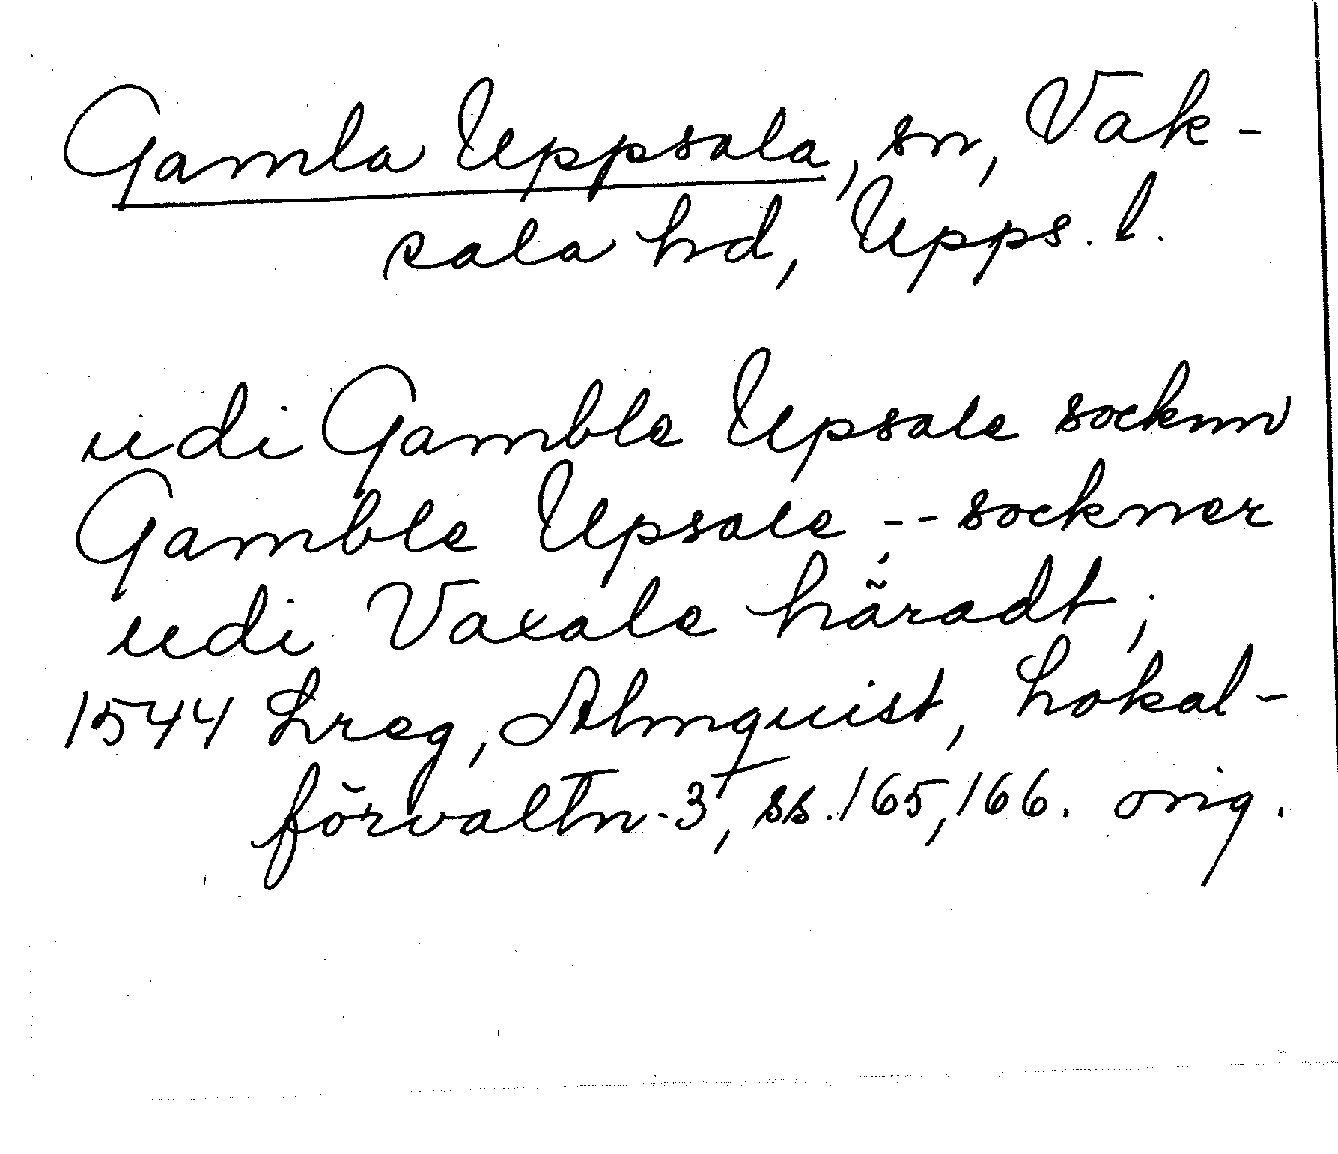 Gamla Uppsala, sn, Vak-
sala hd, Upps. l.
udi Gamble Upsale socknn
Gamble Upsale, -- sockner
udi Vaxale häradt;
1544 Lreg, Almquist, Lokal-
förvaltn. 3, ss. 165, 166. orig.